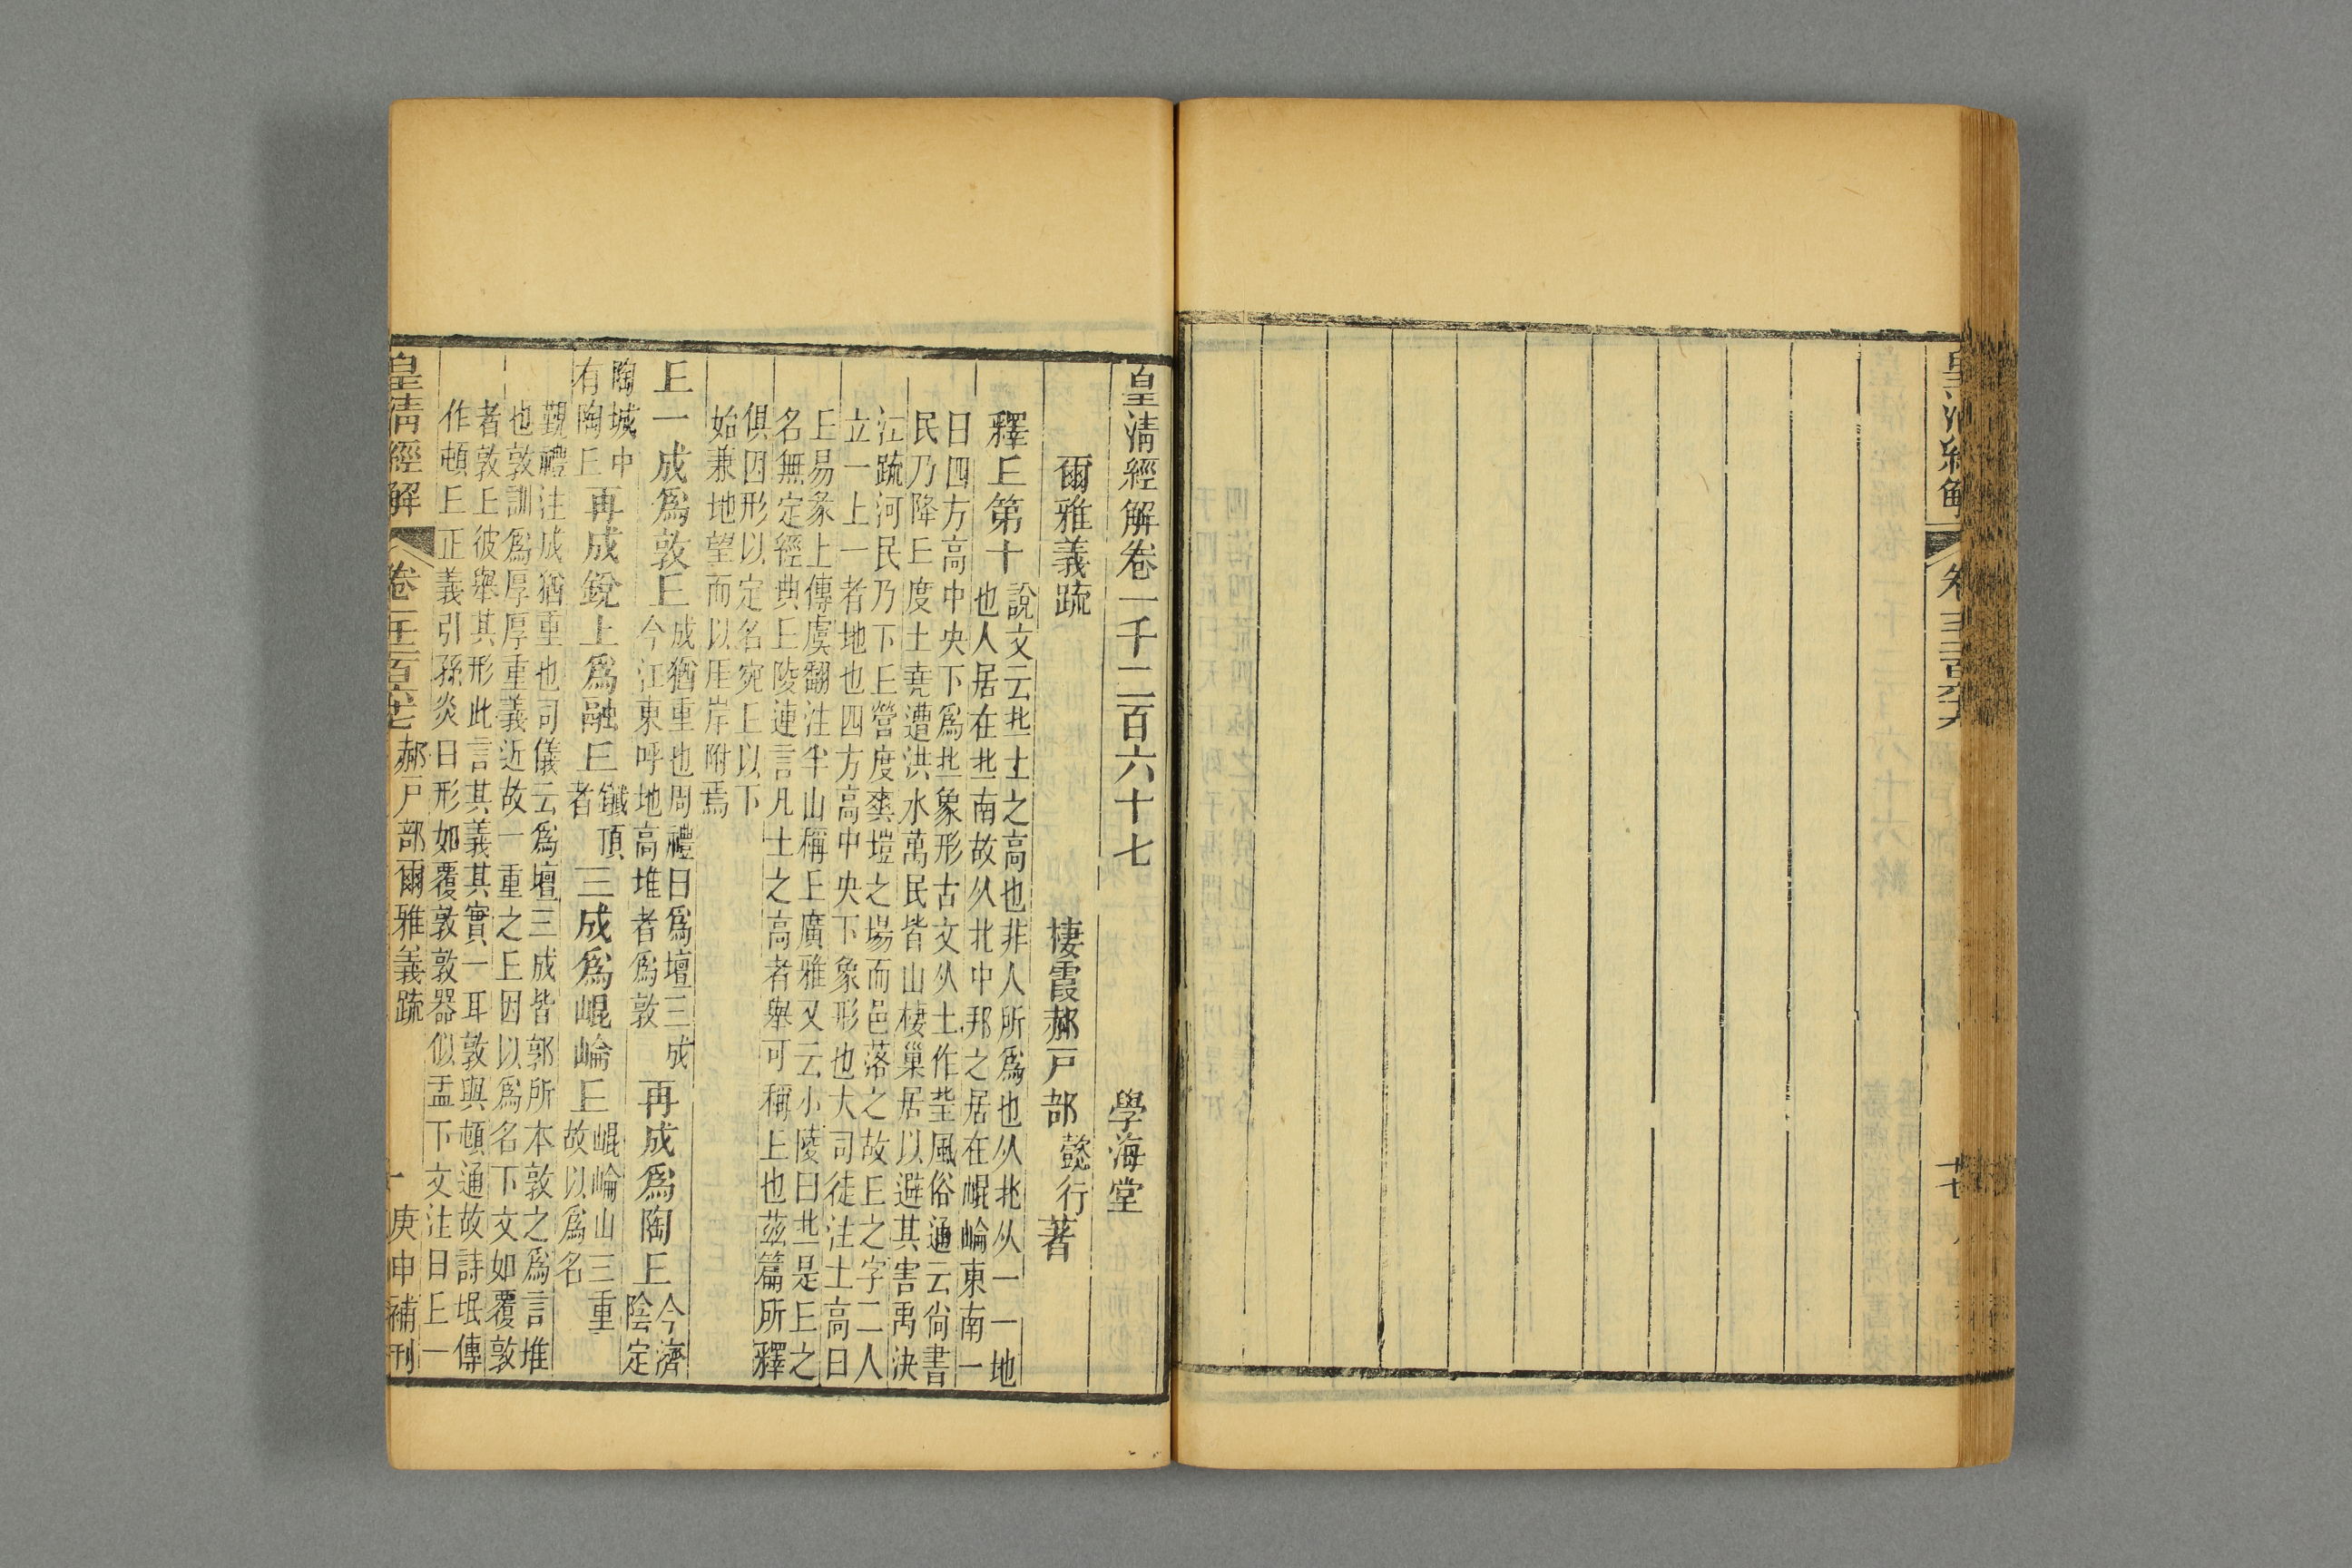 皇清經解 卷
皇清經解卷一千二百六十七 學海堂
爾雅義疏 棲霞郝戶部懿行著
釋𠀉第十 說文云丠土之高也非人所爲也从北从一一地
也人居在丠南故从北中邦之居在崐崘東南一
曰四方高中央下爲丠象形古文从土作㘳風俗通云尙書
民乃降𠀉度土堯遭洪水萬民皆山棲巢居以避其害禹決
江疏河民乃下𠀉營度爽塏之場而邑落之故𠀉之字二人
立一上一者地也四方高中央下象形也大司徒注土高曰
𠀉易彖上傳虞翻注半山稱𠀉廣雅又云小陵曰丠是𠀉之
名無定經典𠀉陵連言凡土之高者舉可稱𠀉也茲篇所釋
俱因形以定名宛𠀉以下
始兼地望而以厓岸附焉
𠀉一成爲敦𠀉 成猶重也周禮曰爲壇三成今江東呼地高堆者爲敦 再成爲陶𠀉 今濟陰定
陶城中有陶𠀉 再成銳上爲融𠀉 鑯頂者 三成爲崐崘𠀉 崐崘山三重故以爲名
覲禮注成猶重也司儀云爲壇三成皆郭所本敦之爲言堆
也敦訓爲厚厚重義近故一重之𠀉因以爲名下文如覆敦
者敦𠀉彼舉其形此言其義其實一耳敦與頓通故詩氓傳
作頓𠀉正義引孫炎曰形如覆敦敦器似盂下文注曰𠀉一
皇清經解 卷一千二百六十七 郝戶部爾雅義疏 一 庚申補刊